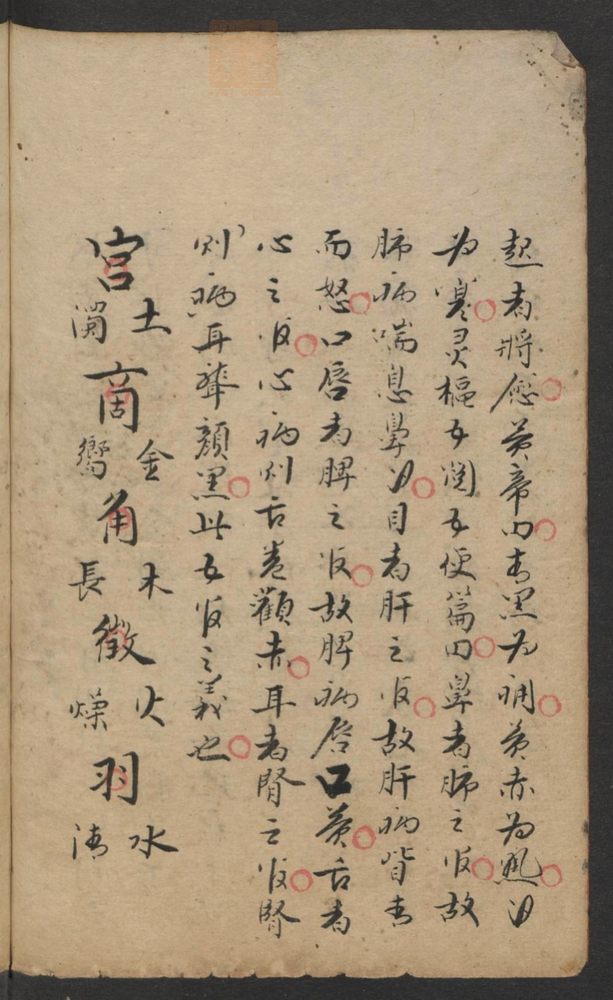 起者將愈黃帝曰青黑为痛黃赤为熱白
为寒灵樞五閱五使篇曰鼻者肺之官故
肺病喘息鼻白目者肝之官故肝病眥青
而怒口唇者脾之官故脾病唇口黃舌者
心之官心病则舌卷顴赤耳者腎之官腎
则病耳聾顏黑此五官之義也
宮土濁商金嚮角木長徵火燥羽水清